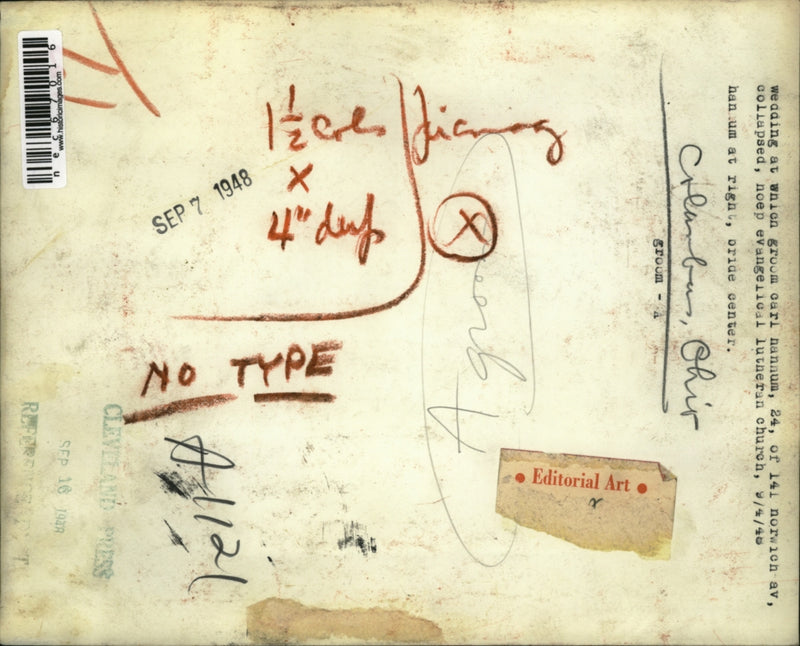 wedding at which groom carl hannum, 24, of 141 norwich av,
collapsed, hoep evangelical lutheran church, 9/4/48
han um at right, bride center.
Columbus, Ohio
groom - A
1 1/2 cols
x
4" deep
X
SEP 7 1948
NO TYPE
A1121
• Editorial Art •
CLEVELAND PRESS
SEP 16 1948
nec67016
www.historicimages.com